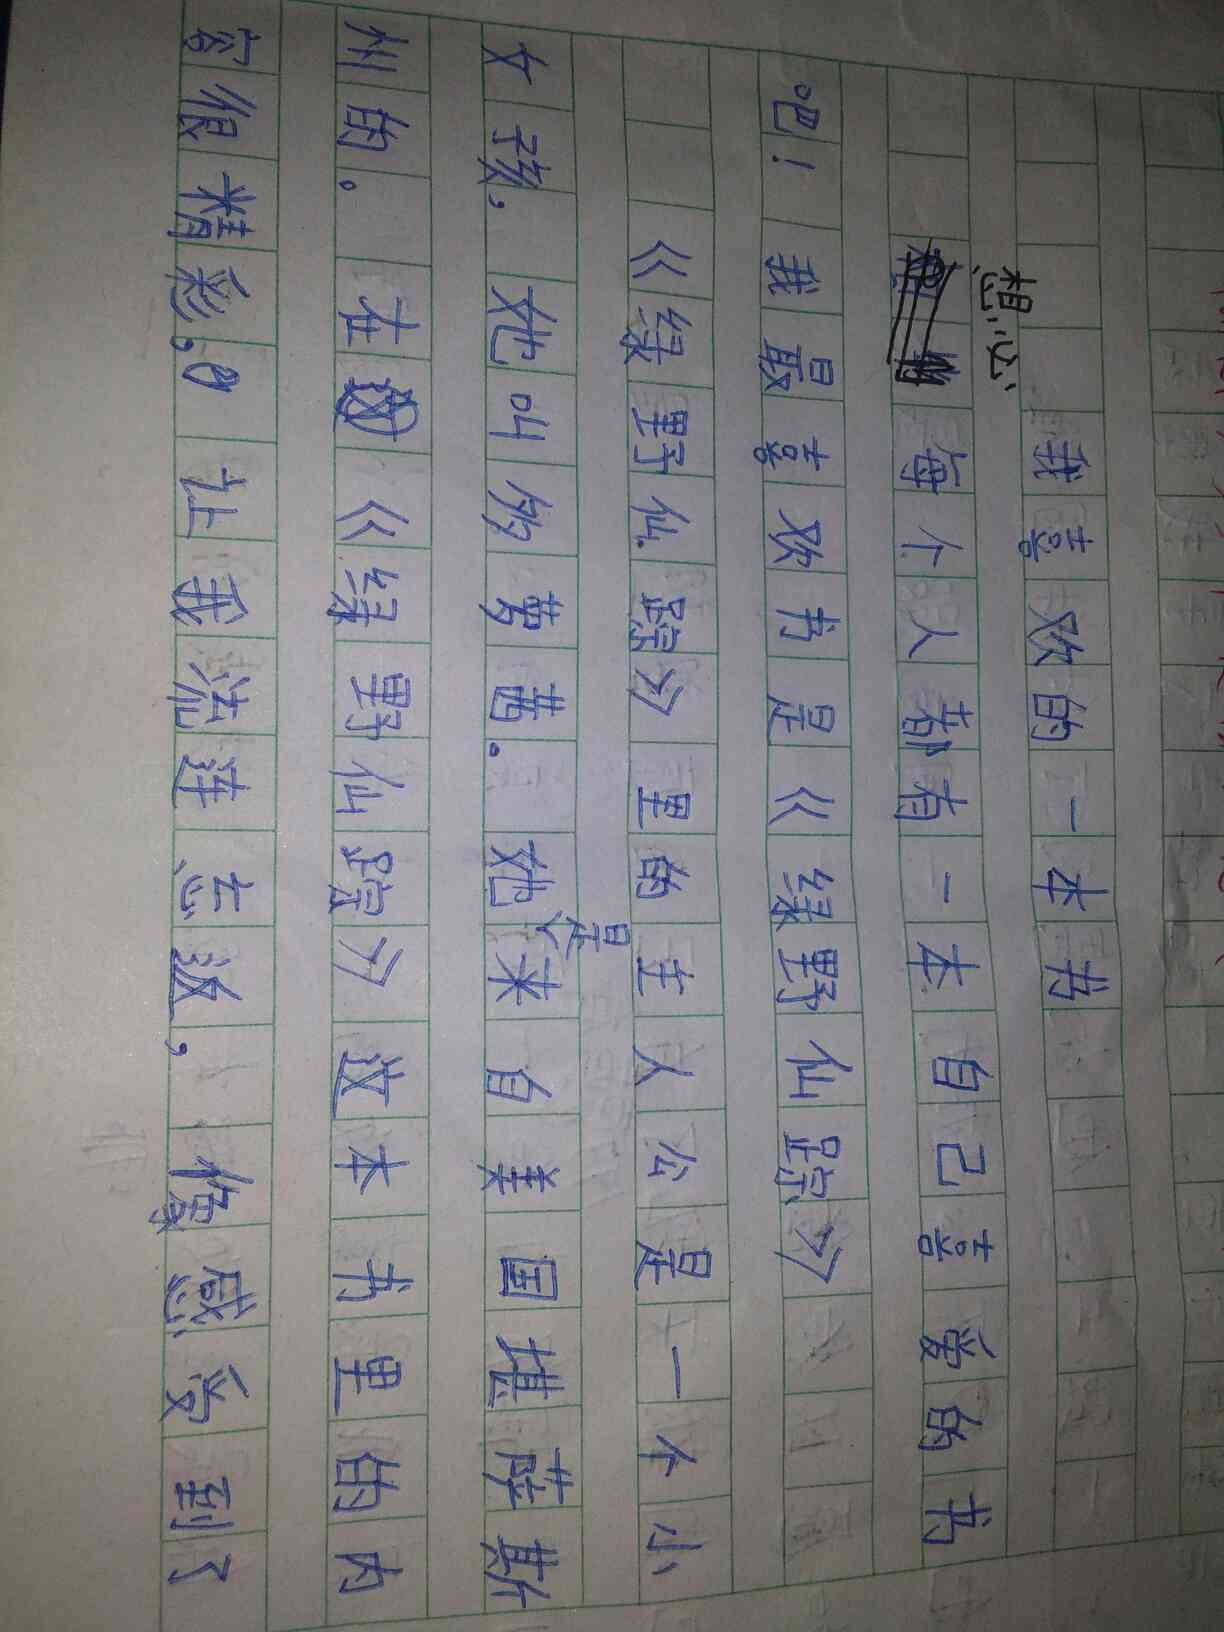 我喜欢的一本书
想必每个人都有一本自己喜爱的书
吧！我最喜欢书是《绿野仙踪》
《绿野仙踪》里的主人公是一个小
女孩，她叫多萝茜。她是来自美国堪萨斯
州的。在《绿野仙踪》这本书里的内
容很精彩，让我流连忘返，像感受到了